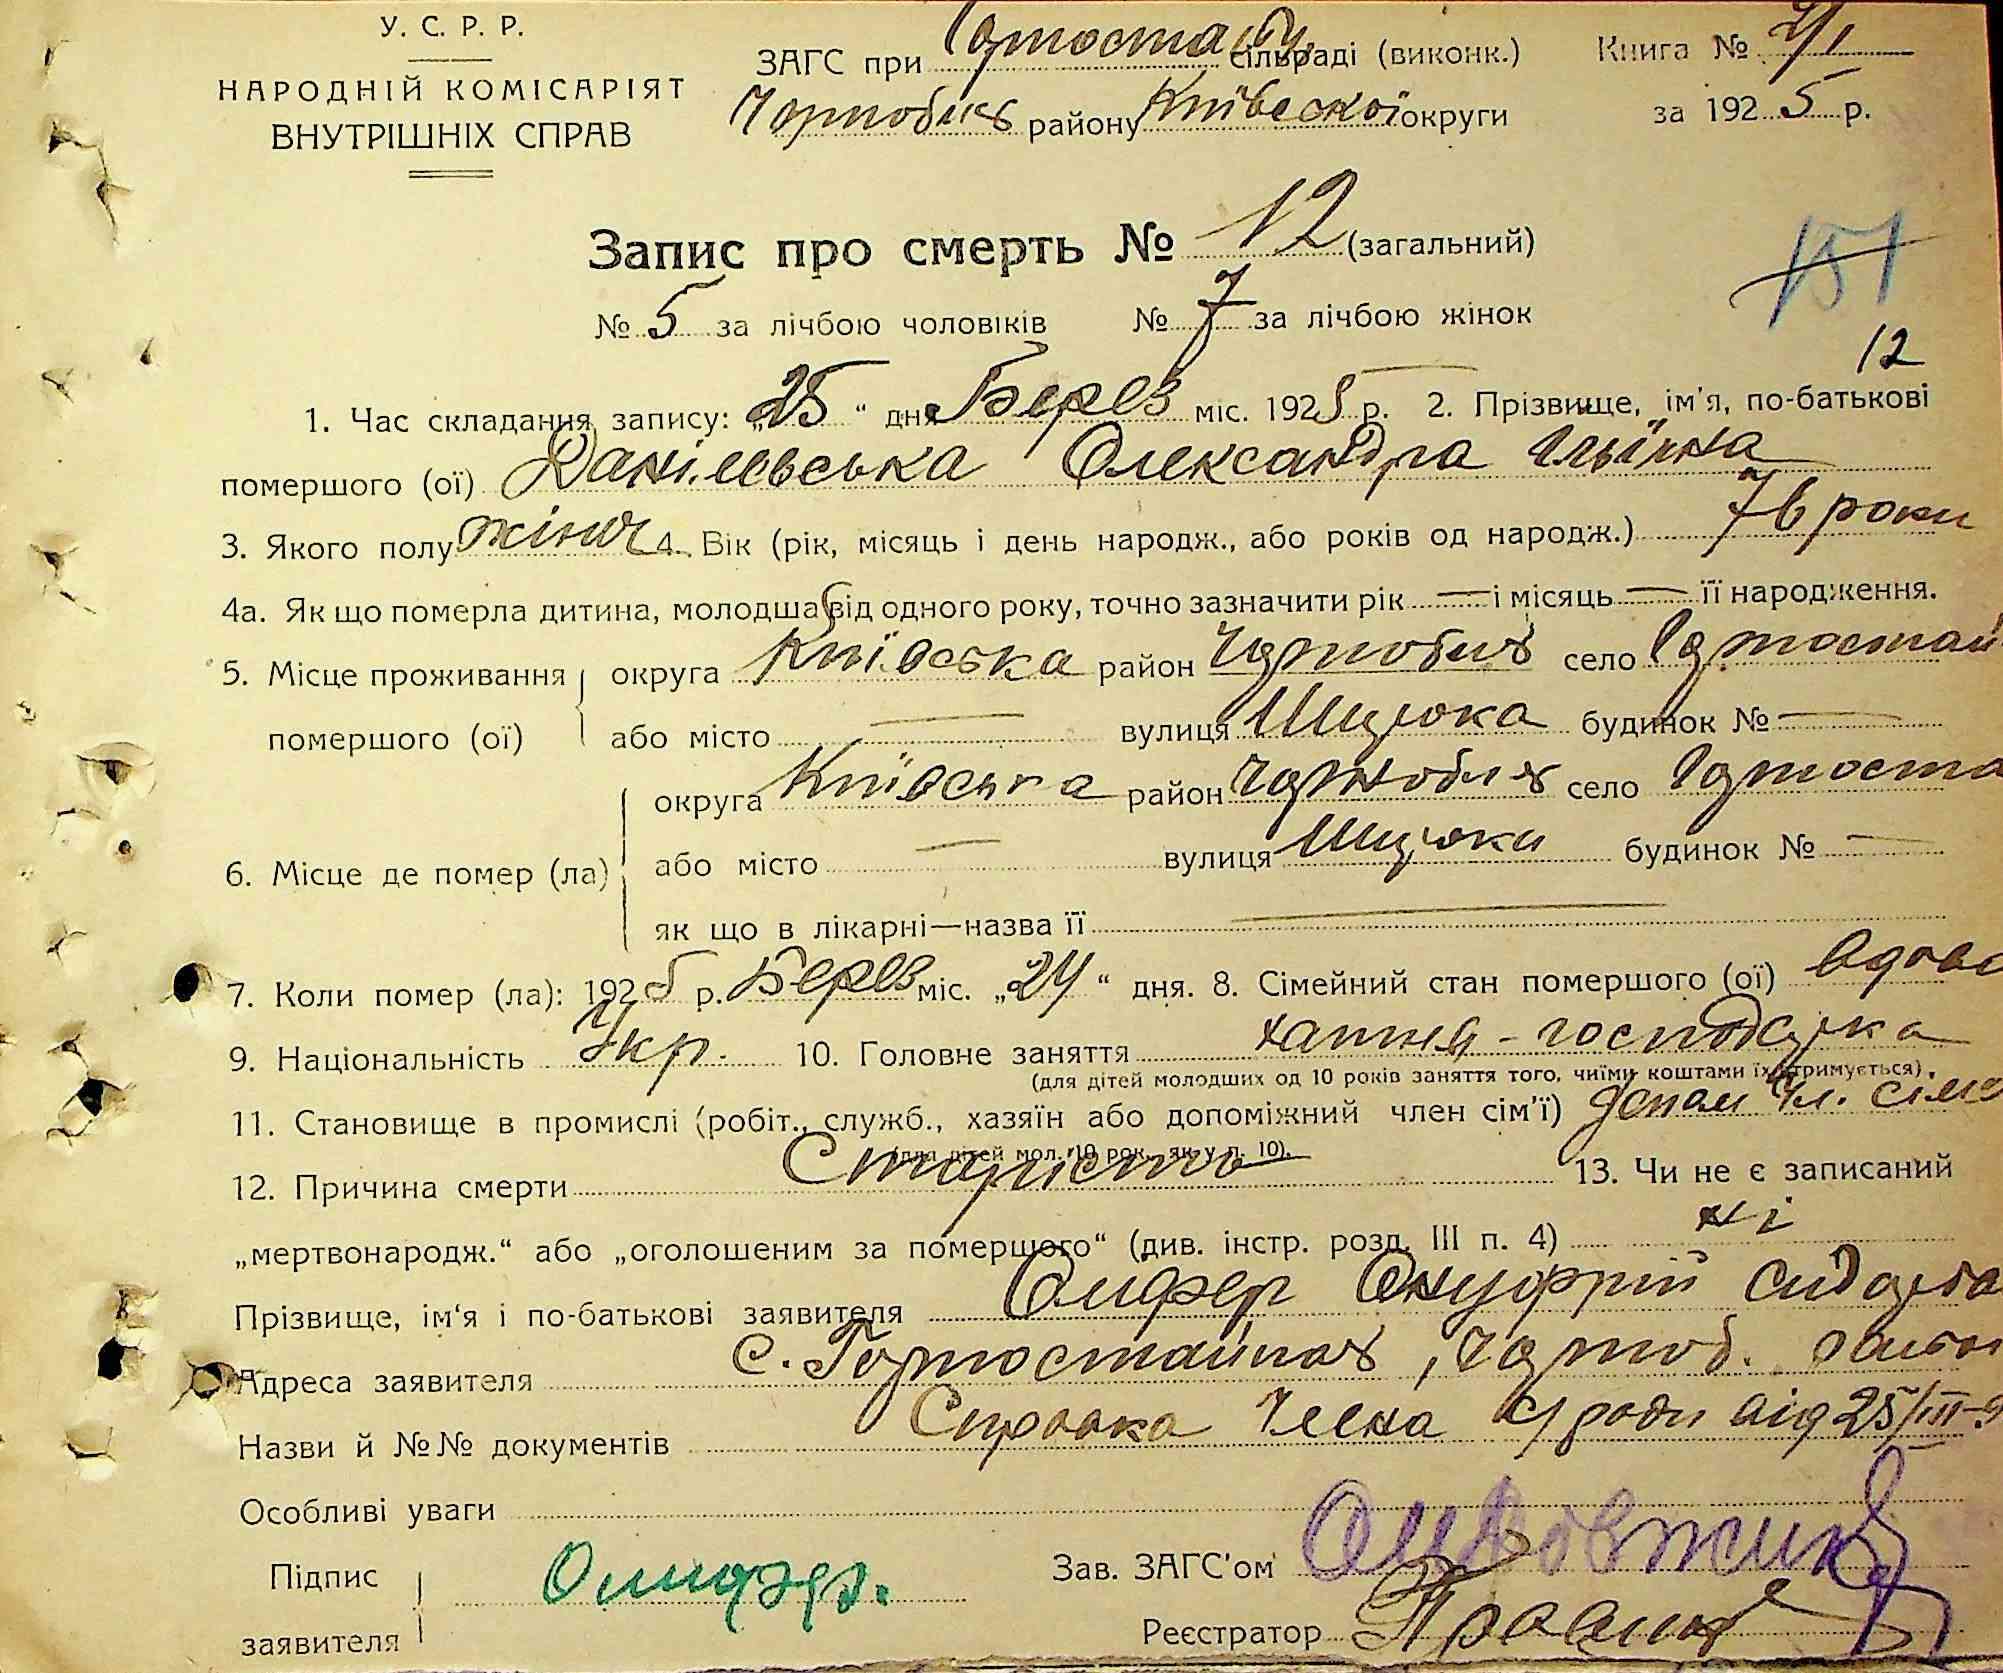 У. С. Р. Р.
НАРОДНІЙ КОМІСАРІЯТ
ВНУТРІШНІХ СПРАВ
ЗАГС при сільраді (виконк.)
району Київської округи
Книга №
за 1925 р.
Запис про смерть № 12 (загальний)
№ 5 за лічбою чоловіків № 7 за лічбою жінок
151
12
1. Час складання запису: „25“ дня Берез міс. 1925 р. 2. Прізвище, ім'я, по-батькові
помершого (ої) Данілевська Олександра Ільїнна
3. Якого полу жіноч 4. Вік (рік, місяць і день народж., або років од народж.) 76 роки
4а. Як що померла дитина, молодша від одного року, точно зазначити рік — і місяць — її народження.
5. Місце проживання помершого (ої) округа Київська район Чорнобиль село Горностай
або місто — вулиця будинок № —
6. Місце де помер (ла) округа Київська район Чорнобиль село Горноста
або місто — вулиця будинок № —
як що в лікарні—назва її —
7. Коли помер (ла): 1925 р. Берез міс. „24“ дня. 8. Сімейний стан помершого (ої) вдова
9. Національність Укр. 10. Головне заняття хатня-господарка
(для дітей молодших од 10 років заняття того, чиїми коштами їх утримується).
11. Становище в промислі (робіт., служб., хазяїн або допоміжний член сім'ї) допом чл. сім
(для дітей мол. 10 рок., як у п. 10).
12. Причина смерти Старість 13. Чи не є записаний
„мертвонародж.“ або „оголошеним за помершого“ (див. інстр. розд. III п. 4) ні
Прізвище, ім‘я і по-батькові заявителя Олифер Онуфрій
Адреса заявителя с. Горностайпіль, Чорноб.
Назви й №№ документів Справка Члена від 25/III-
Особливі уваги
Підпис заявителя Олифер.
Зав. ЗАГС'ом
Реєстратор